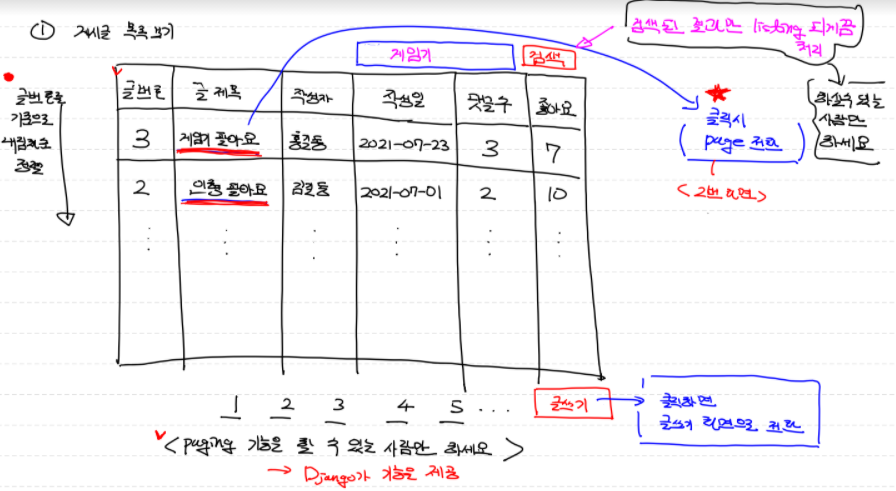 ① 게시글 목록 보기
게임기
검색
검색된 결과만 listing 되게끔
처리
하실수 있는
사람만
하세요
글번호를
기준으로
내림차순
정렬
글번호 글 제목 작성자 작성일 댓글수 좋아요
3 게임기 팔아요 홍길동 2021-07-23 3 7
2 인형 팔아요 김길동 2021-07-01 2 10
클릭시
( page 전환 )
<2번 화면>
1 2 3 4 5 ...
글쓰기
클릭하면
글쓰기 화면으로 전환
<paging 기능을 할 수 있는 사람만 하세요>
→ Django가 기능을 제공